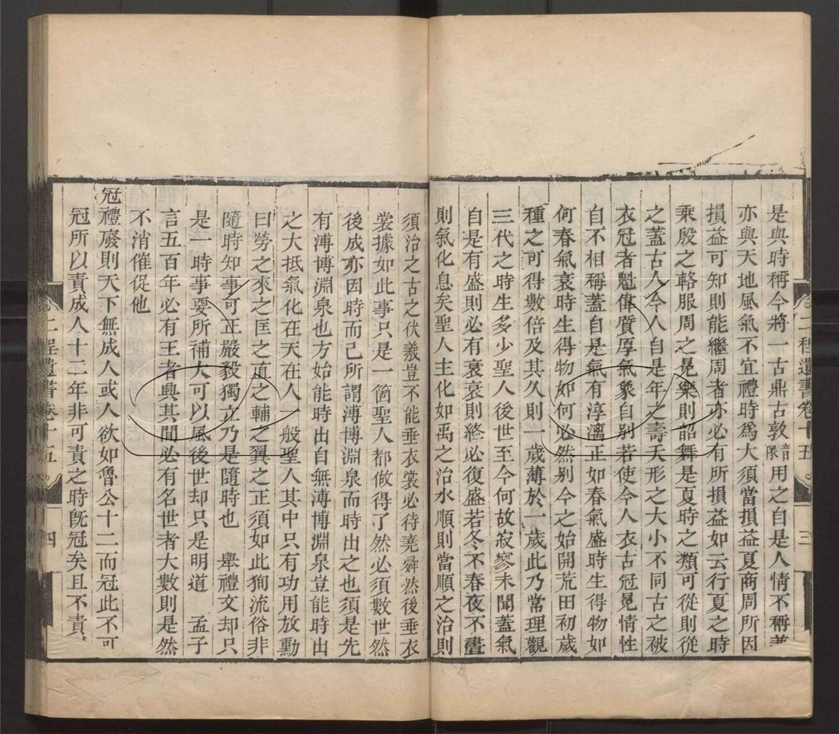 是與時稱今將一古鼎古敦音隊用之自是人情不稱兼
亦與天地風氣不宜禮時爲大須當損益夏商周所因
損益可知則能繼周者亦必有所損益如云行夏之時
乘殷之輅服周之冕樂則韶舞是夏時之類可從則從
之蓋古人今人自是年之壽夭形之大小不同古之被
衣冠者魁偉質厚氣象自别若使今人衣古冠冕情性
自不相稱蓋自是氣有淳漓正如春氣盛時生得物如
何春氣衰時生得物如何必然别今之始開荒田初歲
種之可得數倍及其久則一歲薄於一歲此乃常理觀
三代之時生多少聖人後世至今何故寂寥未聞蓋氣
自是有盛則必有衰衰則終必復盛若冬不春夜不晝
則氣化息矣聖人主化如禹之治水順則當順之治則
二程遺書卷十五 三
須治之古之伏羲豈不能垂衣裳必待堯舜然後垂衣
裳據如此事只是一箇聖人都做得了然必須數世然
後成亦因時而已所謂溥博淵泉而時出之也須是先
有溥博淵泉也方始能時出自無溥博淵泉豈能時出
之大抵氣化在天在人一般聖人其中只有功用放勳
曰勞之來之匡之直之輔之翼之正須如此狥流俗非
隨時知事可正嚴毅獨立乃是隨時也 舉禮文却只
是一時事要所補大可以風後世却只是明道 孟子
言五百年必有王者興其間必有名世者大數則是然
不消催促他
冠禮廢則天下無成人或人欲如魯公十二而冠此不可
冠所以責成人十二年非可責之時旣冠矣且不責
二程遺書卷十五 四